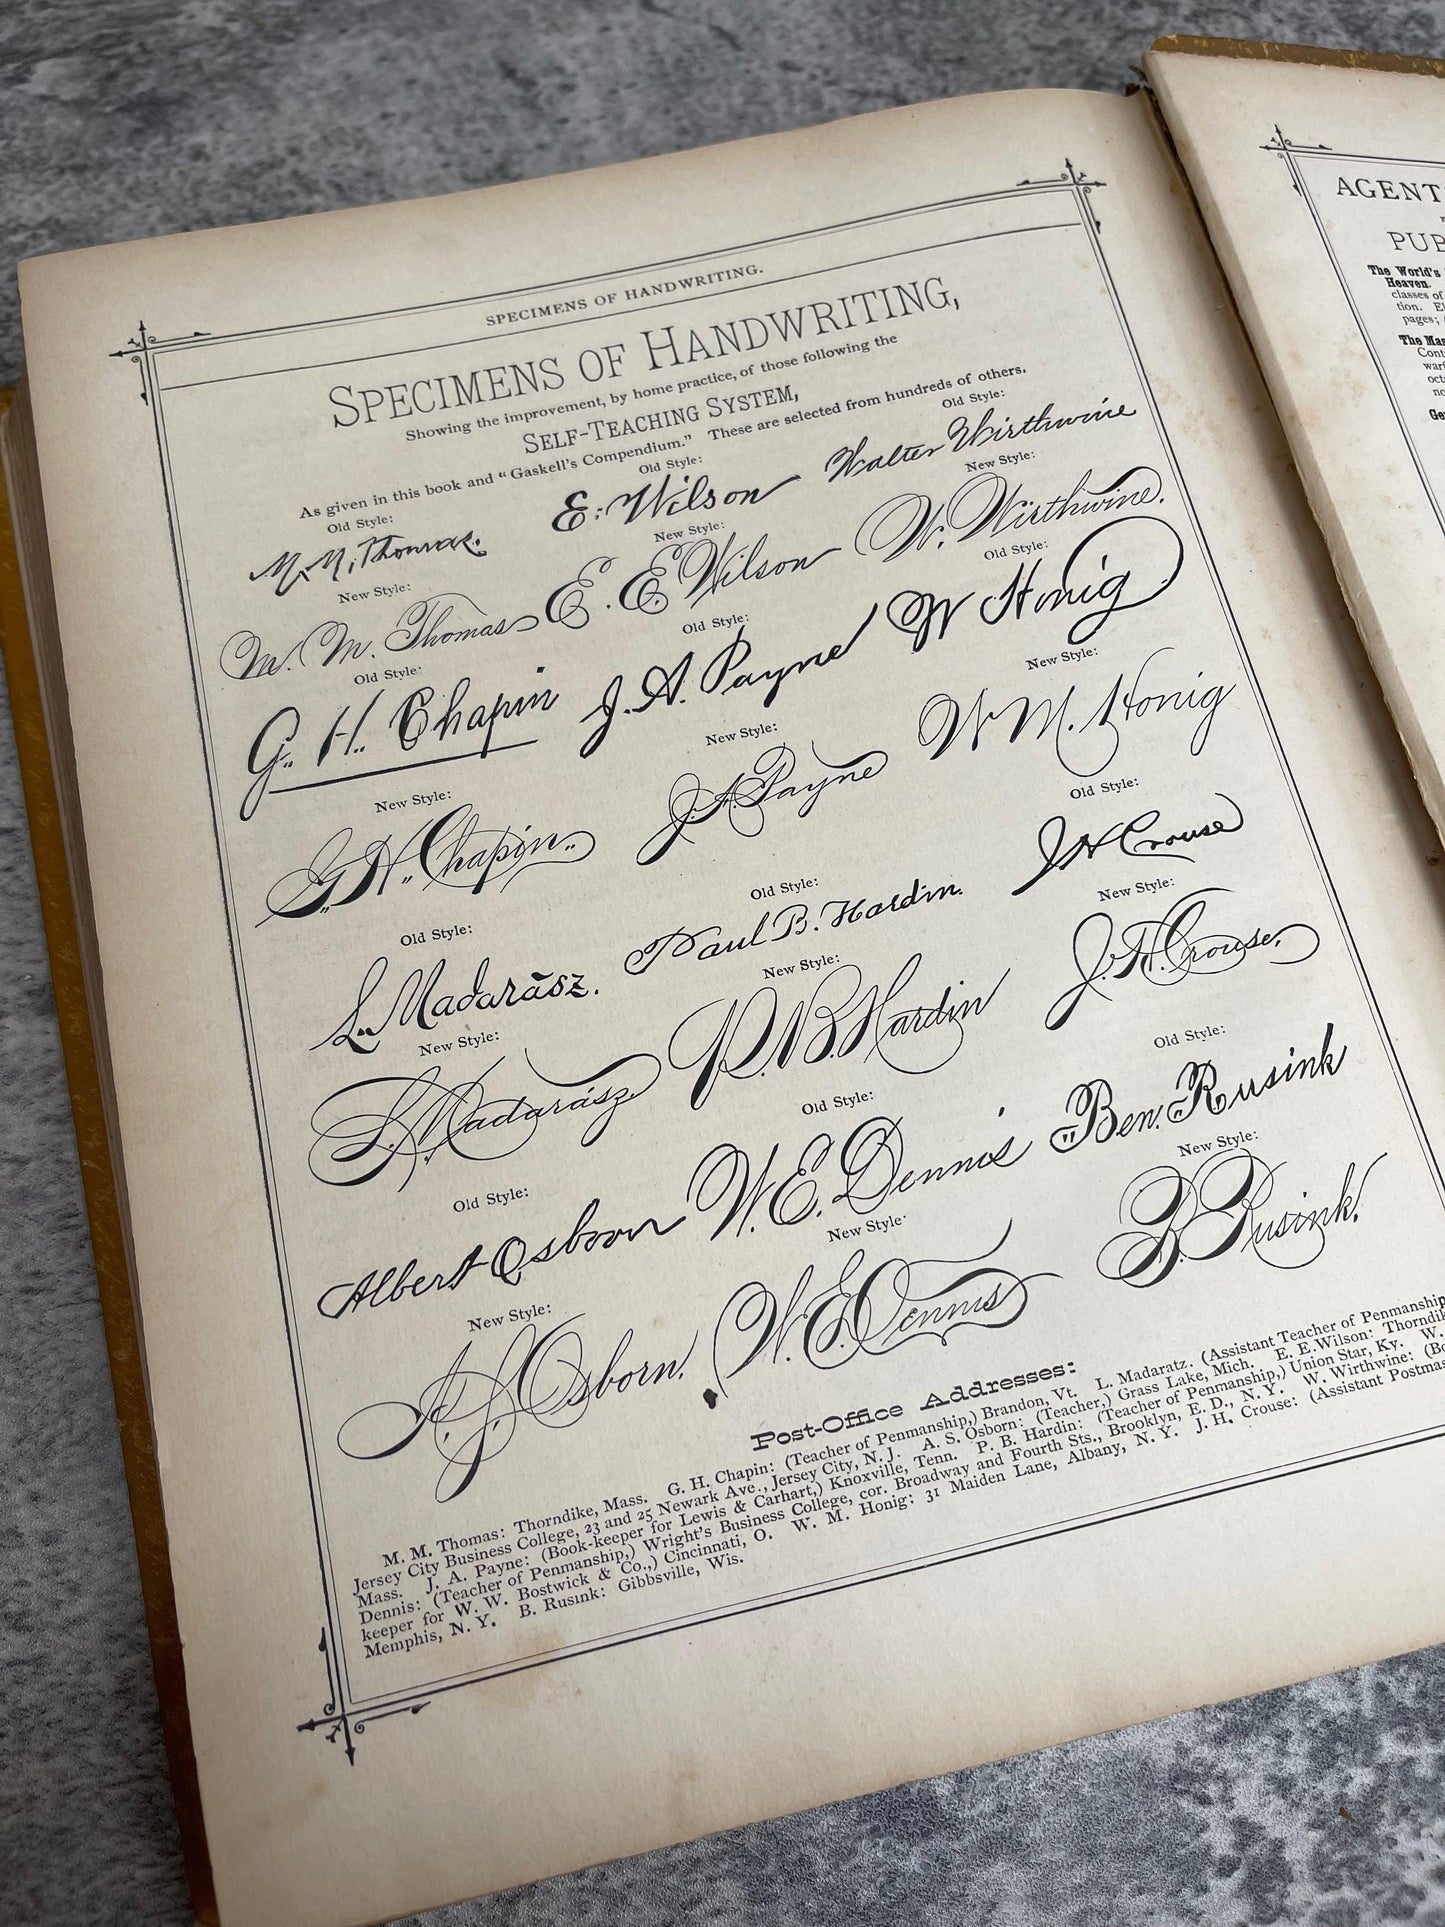 SPECIMENS OF HANDWRITING.
SPECIMENS OF HANDWRITING,
Showing the improvement, by home practice, of those following the
SELF-TEACHING SYSTEM,
As given in this book and "Gaskell's Compendium." These are selected from hundreds of others.
Old Style:
M. M. Thomas.
New Style:
M. M. Thomas
Old Style:
G. H. Chapin
New Style:
G. H. Chapin.
Old Style:
L. Madarász.
New Style:
L. Madarász
Old Style:
Albert Osborn
New Style:
A. S. Osborn.
Old Style:
E. Wilson
New Style:
E. E. Wilson
Old Style:
J. A. Payne
New Style:
J. A. Payne
Old Style:
Paul B. Hardin.
New Style:
P. B. Hardin
Old Style:
W. E. Dennis
New Style
W. E. Dennis
Old Style:
Walter Wirthwine
New Style:
W. Wirthwine.
Old Style:
W Honig
New Style:
W M. Honig
Old Style:
J H Crouse
New Style:
J. H. Crouse,
Old Style:
Ben. Rusink
New Style:
B. Rusink.
Post-Office Addresses:
M. M. Thomas: Thorndike, Mass. G. H. Chapin: (Teacher of Penmanship,) Brandon, Vt. L. Madaratz. (Assistant Teacher of Penmanship
Jersey City Business College, 23 and 25 Newark Ave., Jersey City, N. J. A. S. Osborn: (Teacher,) Grass Lake, Mich. E. E. Wilson: Thorndike
Mass. J. A. Payne: (Book-keeper for Lewis & Carhart,) Knoxville, Tenn. P. B. Hardin: (Teacher of Penmanship,) Union Star, Ky. W.
Dennis: (Teacher of Penmanship,) Wright's Business College, cor. Broadway and Fourth Sts., Brooklyn, E. D., N. Y. W. Wirthwine: (Bo
keeper for W. W. Bostwick & Co.,) Cincinnati, O. W. M. Honig: 31 Maiden Lane, Albany, N. Y. J. H. Crouse: (Assistant Postmas
Memphis, N. Y. B. Rusink: Gibbsville, Wis.
AGENT
PUB
The World's
Heaven.
classes of
tion.
pages;
The Mas
Cont
war
oct
no
Ge